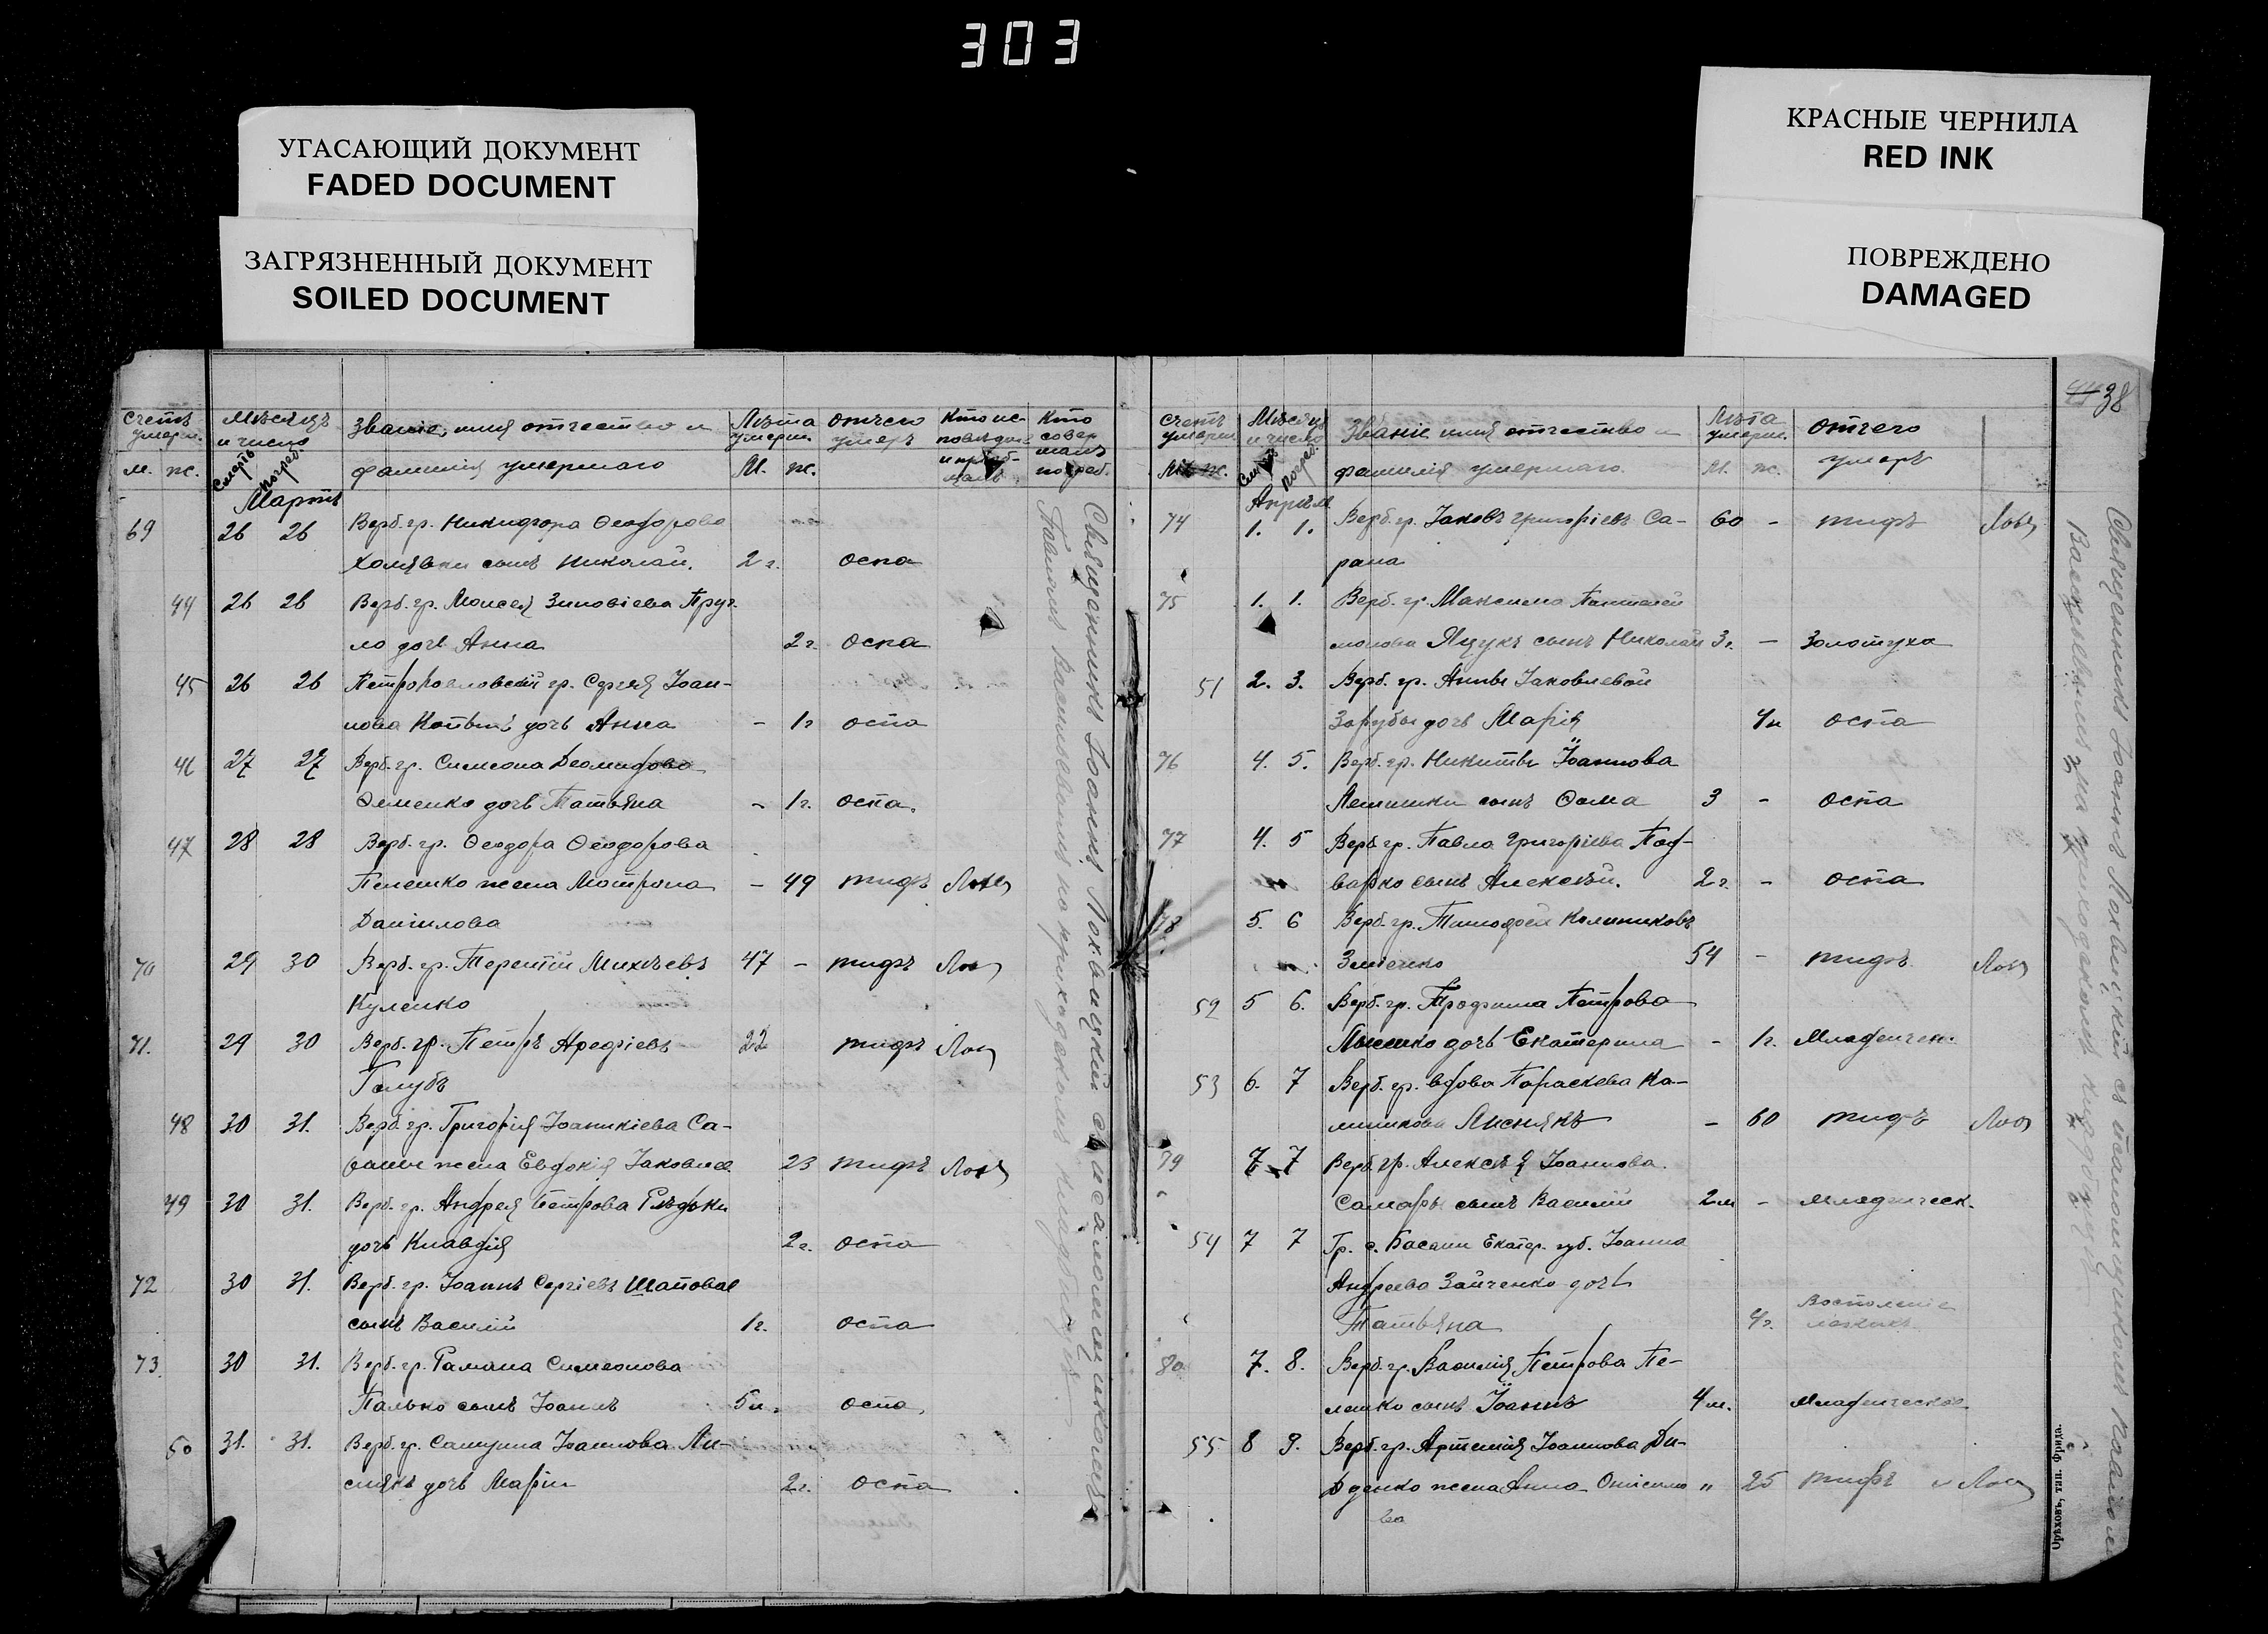 303
УГАСАЮЩИЙ ДОКУМЕНТ
FADED DOCUMENT
ЗАГРЯЗНЕННЫЙ ДОКУМЕНТ
SOILED DOCUMENT
КРАСНЫЕ ЧЕРНИЛА
RED INK
ПОВРЕЖДЕНО
DAMAGED
Счетъ умерш. Мѣсяцъ и число Званіе, имя отчество и Лѣта умерш. отчего умеръ Кто ис- Кто совер
м. ж. Смерть погреб. фамилія умершаго М. ж. погреб.
Мартъ
69 26 26 Верб. гр. Никифора Ѳеодорова
Холявки сынъ Николай. 2 г. оспа
44 26 26 Верб. гр. Моисея Зиновіева Пруг-
ло дочь Анна 2 г. оспа
45 26 26 Петропавловскій гр. Сергія Іоан-
нова дочь Анна - 1 г. оспа
46 27 27 Верб. гр. Симеона Деомидова
Ѳеменко дочь Татьяна - 1 г. оспа.
47 28 28 Верб. гр. Ѳеодора Ѳеодорова
Пелешко жена Мотрона - 49 тифъ
Данилова
70 29 30 Верб. гр. Терентій Михѣевъ 47 - тифъ
Куленко
71. 29 30 Верб. гр. Петръ Арефіевъ 22 тифъ
Голубъ
48 30 31. Верб. гр. Григорія Іоаникіева Са-
жена Евдокія Іаковлев. 23 тифъ
49 30 31. Верб. гр. Андрея Петрова Рѣдьки
дочь Клавдія 2 г. оспа
72 30 31. Верб. гр. Іоаннъ Сергіевъ Шаповал
сынъ Василій 1 г. оспа
73 30 31. Верб. гр. Романа Симеонова
Палько сынъ Іоаннъ 5 м. оспа,
50 31. 31. Верб. гр. Самуила Іоаннова Ли-
снякъ дочь Марія 2 г. оспа
Священникъ Іоаннъ Локвицкій съ псаломщикомъ
Павломъ Васильевымъ на приходскомъ кладбищѣ
38
Счетъ умерш. Мѣсяцъ и число Званіе имя отчество и Лѣта умерш. отчего
М. ж. погреб. фамилія умершаго М. ж. умеръ
Апрѣль
74 1. 1. Верб. гр. Іаковъ Григоріевъ Са- 60 - тифъ
рана
75 1. 1. Верб. гр. Максима Пантелей
монова Яцукъ сынъ Николай 3 г. - Золотуха
51 2. 3. Верб. гр. Анны Іаковлевой
Зарубы дочь Марія 4 м оспа
76 4. 5. Верб. гр. Никиты Іоаннова
сынъ Ѳома 3 - оспа
77 4. 5 Верб. гр. Павла Григоріева Под-
варко сынъ Алексѣй. 2 г. - оспа
78 5. 6 Верб. гр. Тимофей Калиниковъ
54 - тифъ
52 5 6. Верб. гр. Трофима Петрова
дочь Екатерина - 1 г. Младенчек.
53 6. 7 Верб. гр. вдова Параскева Ка-
линикова Лиснякъ - 60 тифъ
79 7 7 Верб. гр. Алексѣя Іоаннова
Самары сынъ Василій 2 м - младенческ.
54 7 7 Гр. с. Басани Екатер. губ. Іоанна
Андреева Зайченко дочь
Татьяна 4 г. Воспаленіе легкихъ
80 7. 8. Верб. гр. Василія Петрова Пе-
лешко сынъ Іоаннъ 4 м. Младенческая
55 8 9. Верб. гр. Артемія Іоаннова Ди-
денко жена Анна Онисимо " 25 тифъ
ва
Священникъ Іоаннъ Локвицкій съ псаломщикомъ Павломъ
Васильевымъ на приходскомъ кладбищѣ
Орѣховъ, тип. Фрида.